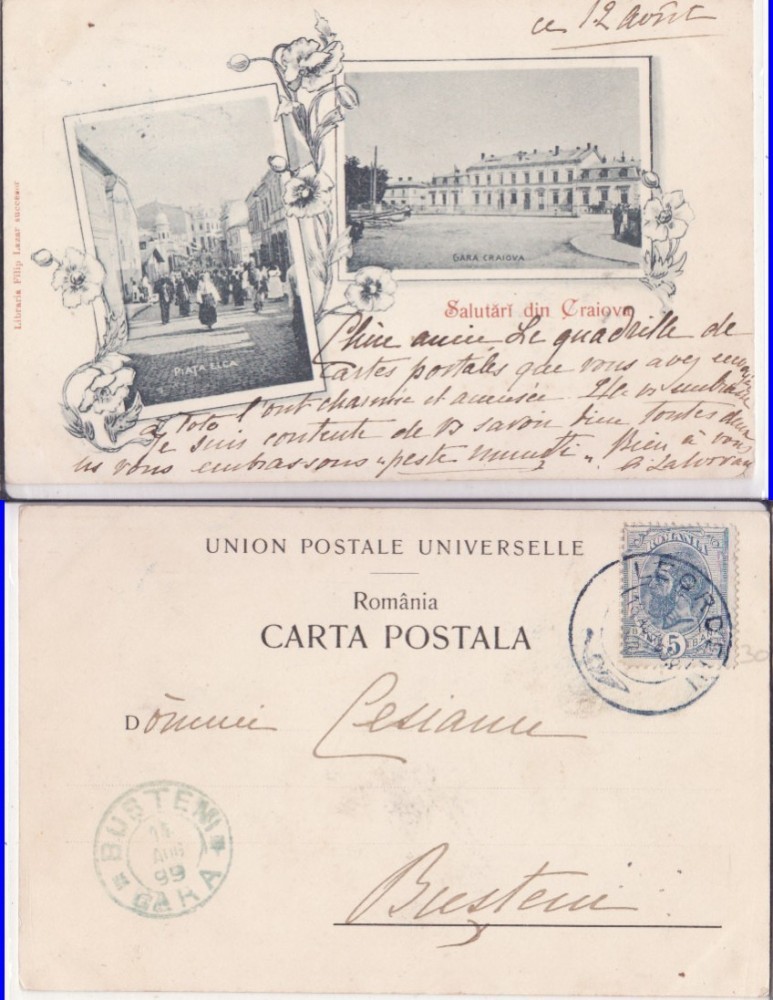 ce 12 août
Libraria Filip Lazar succesor
GARA CRAIOVA
PIAȚA ELCA
Salutări din Craiova
Chère amie. Le quadrille de
cartes postales que vous avez envoyé
à Toto l'ont charmé et amusée. Elle vs embrasse
Je suis contente de vs savoir bien toutes deux
vous embrassons "peste munți". Bien à vous
UNION POSTALE UNIVERSELLE
România
CARTA POSTALA
ROMANIA
5
BANI
LEORDENI
Dômnei Cesianu
BUȘTENI
AUG
99
GARA
Bușteni
30